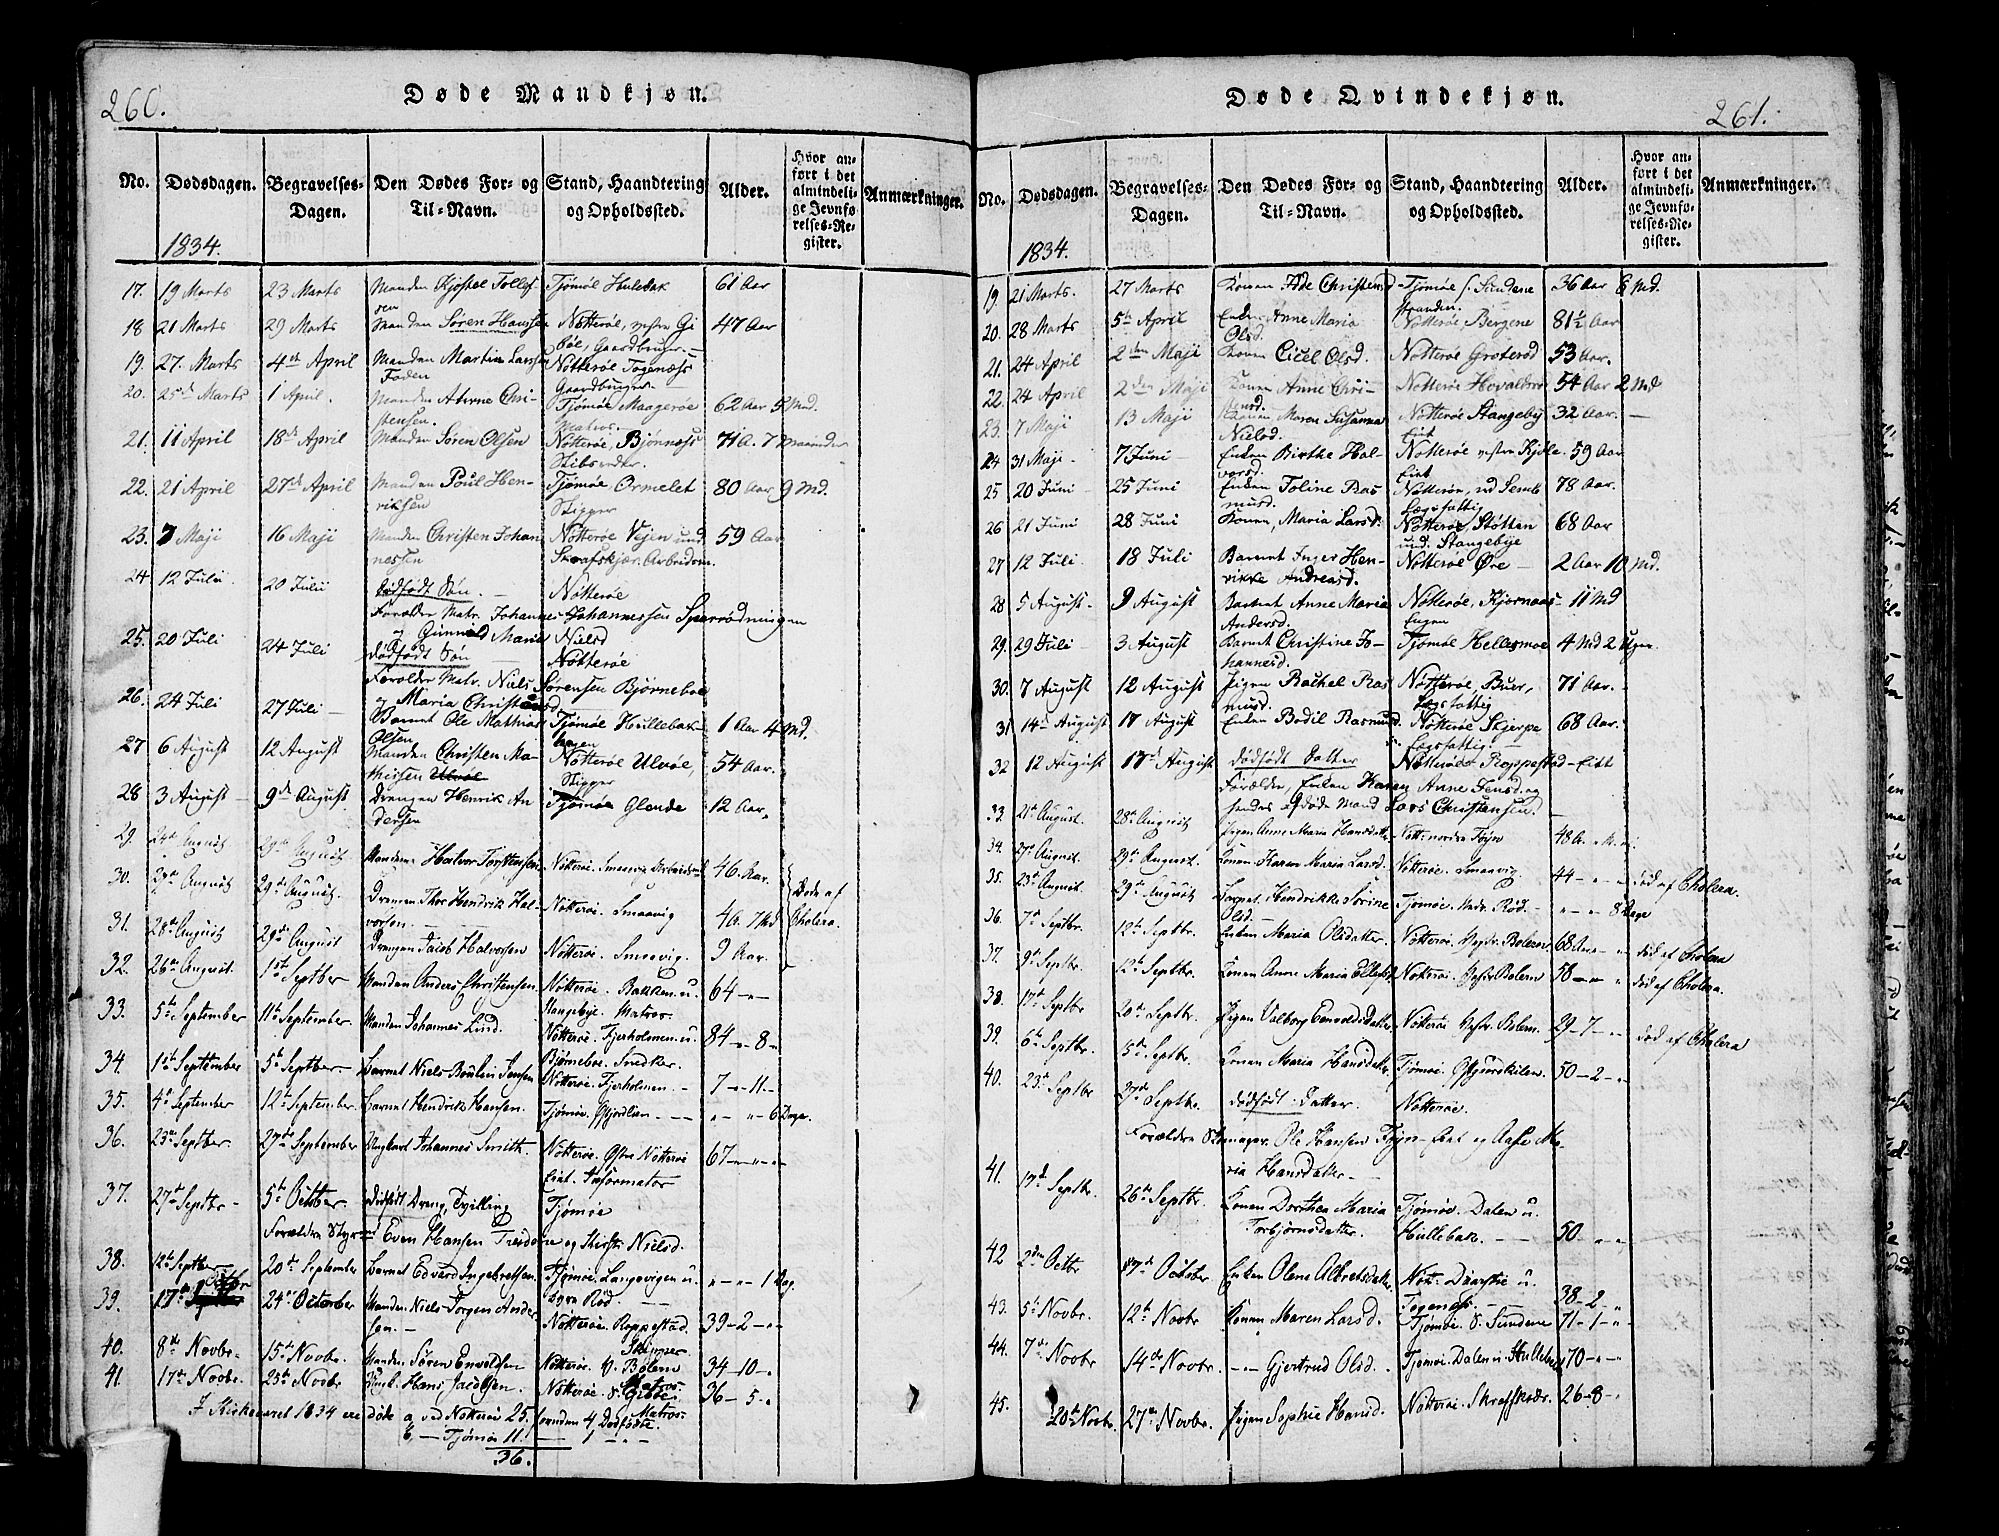 260.
Døde Mandkjøn.
No.
Dødsdagen.
Begravelses-Dagen.
Den Dødes For- og Til-Navn.
Stand, Haandtering og Opholdssted.
Alder.
Hvor anført i det almindelige Jevnførelses-Register.
Anmærkninger.
1834.
17. 19 Marts 23 Marts Manden Kjøstel Tollefsen Tjømøe Hulebak 61 Aar
18 21 Marts 29 Marts Manden Søren Hansen Nøtterøe, vestre Gibøe, Gaardbruger 47 Aar
19. 27. Marts 4de April Manden Martin Larsen Foden Nøtterøe Togenæss Gaardbruger
20. 25de Marts 1 April. Manden Christensen. Tjømøe Maagerøe Matros. 62 Aar 5 Md.
21. 11 April 18de April Manden Søren Olsen Nøtterøe, Bjørnæss 71 A. 7 Maaneder
22. 21 April 27de April Manden Poul Henriksen Tjømøe Ormelet Skipper 80 Aar 9 Md.
23. 7 Maji 16 Maji Manden Christen Johannessen Nøtterøe Vejen und Skrafskjær. Arbeidsm. 59 Aar
24 12 Julii 20 Julii Dødfødt Søn. Nøtterøe
Forælder Matr. Johannes Johannessen og Gunnild Marie Nielsd
25. 20 Juli 24 Juli dødfødt Søn Nøtterøe
Forælder Matr. Niels Sørensen Bjørneboe og Maria Christensd
26. 24 Juli 27 Juli Barnet Ole Mathias Olsen Tjømøe Hullebakhagen 1 Aar 4 Md.
27 6 August 12 August Manden Christen Mathisen Nøtterøe Ulvøe, Skipper 54 Aar.
28 3 August 9de August Drengen Henrik Andersen Tjømøe Glende 12 Aar.
29. 24de August 29de August Manden Halvor Torstensen Nøtterøe. Smaavig Arbeidsmd 46 Aar.
30. August 29de August. Drengen Thor Hendrik Halvorsen. Nøtterøe. Smaavig 4 A. 7 Md
Døde af Cholera.
31. 28de August 29de August Drengen Jacob Halvorsen Nøtterøe. Smaavig. 9 Aar.
32. 26de August. 1ste Septber Manden Anders Christensen Nøtterøe. Bakken u. Stangebye. Matros. 64 - "-
33. 5te September 11te September. Manden Johannes Lind. Nøtterøe. Fjerholmen u. Bjørneboe. Snedker. 84 - 8 -
34. 1ste September 5te Septber Barnet Niels Jensen Nøtterøe. Fjerholmen. 7 - 11 -
35. 4de September 12te September. Barnet Hendrik Hansen. Tjømøe. " " 6 Dage.
36. 23de Septber. 27de September Ungkarl Johannes Smith. Nøtterøe. Østre Nøtterøe Eiet. Informator 67 - " -
37. 27de Septbr - 5te October dødfødt Dreng, Tvilling Tjømøe
Forældre Even Hansen og Nielsd.
38. 12te Septbr 20de September Barnet Edvard Ingebretsen. Tjømøe. Langevigen u. Rød. " " 1 Dag.
39. 17de Octbr 24de October Manden Niels Jørgen Andersen. Nøtterøe. Roppestad. Skipper 39 - 2 - "
40. 8de Novbr. 15de Novbr. Manden Søren Envoldsen Nøtterøe. V. Bolærn Matros 34 - 10 -
41. 17de Novbr. 25de Novbr Hans Jacobsen. Nøtterøe. Matros 36 - 5 -
I Kirkeaaret 1834 ere døde a, ved Nøtterøe 25. foruden 4 Dødfødte
- Tjømøe 11. 1
36.
261.
Døde Qvindekjøn.
No.
Dødsdagen.
Begravelses-Dagen.
Den Dødes For- og Til-Navn.
Stand, Haandtering og Opholdssted.
Alder.
Hvor anført i det almindelige Jevnførelses-Register.
Anmærkninger.
1834.
19. 21 Marts. 27 Marts Konen Ide Christensd Tjømøe S. Sundene Stranden. 36 Aar 6 Md.
20. 28 Marts 5te April Enken Anne Maria Olsd. Nøtterøe, Bergene 81½ Aar
21. 24 April 2den Maji Konen Cicel Olsd. Nøtterøe Grøterød 53 Aar.
22. 24 April 2den Maji Konen Anne Nøtterøe 54 Aar 2 Md
23. 7 Maji 13 Maji Konen Maren Susanna Nielsd. Nøtterøe Stangeby Eiet 32 Aar.
24 31 Maji 7 Juni Enken Birthe Halvorsd. Nøtterøe vestre Kjøle Eiet 59 Aar
25 20 Juni 25 Juni Enken Toline Rasmusd. Nøtterøe, ved Semb Lægsfattig 78 Aar.
26 21 Juni 28 Juni Konen, Maria Larsd. Nøtterøe Støtten und. Stangebye 68 Aar
27 12 Juli 18 Juli Barnet Inger Henrikke Andreasd. Nøtterøe Øre 2 Aar 10 Md.
28 5 August. 9 August Barnet Anne Maria Andersd. Nøtterøe, Kjørnaas Eugen 11 Md
29. 29 Juli 3 August Barnet Christine Johannesd. Tjømøe Hellesmoe 4 Md 2 Uger.
30. 7 August 12 August Pigen Rachel Rasmusd. Nøtterøe, Buer, Lægsfattig 71 Aar.
31 14de August 17 August Enken Bodil Rasmusd. Nøtterøe Skjerpe Lægsfattig 68 Aar.
32 12 August 17de August dødfødt Datter Nøtterøe Roppestad Eiet
Forælder, Enken Karen Anne Jensd. og hendes afdøde Mand Lars Christensen.
33. 21de August. 28de August Pigen Anne Maria Hansdatter Nøtt: nordre Føyn 48 A.
34. 27de August. 29de August. Konen Karen Maria Larsd. Nøtterøe. Smaavig. 44 - " " død af Cholera.
35. 23de August. 29de August Barnet Hendrikke Sørine Olsd. Tjømøe. Nedr. Rød. " " 8 Dage
36. 7de Septbr. 12te Septbr. Enken Maria Olsdatter. Nøtterøe. Vestr. Bolern 68 Aar død af Cholera
37. 9de Septbr. 12te Septbr. Konen Anne Maria Ellefsd. Nøtterøe. Vestr. Bolern 58 - død af Cholera.
38. 17de Septbr 20de Septbr. Pigen Valborg Envoldsdatter. Nøtterøe Vestr. Bolern. 29 - 7 - død af Cholera
39. 6te Septbr. 15de Septbr. Konen Maria Hansdatter Tjømøe. 50 - 2 -
40. 23de Septbr 27de Septbr. dødfødt Datter. Nøtterøe.
Forældre Ole Hansen Føyn - Eiet og Aase Maria Hansdatter
41. 17de Septbr. 26de Septbr. Konen Dorthea Maria Torbjørnsdatter. Tjømøe. Dalen u. Hullebak. 50 - " "
42 2den Octbr 17de October Enken Olene Albretsdatter Nøtt. u. Togenæs. 38 - 2 - "
43. 5te Novbr. 12te Novbr Konen Maren Larsd. Tjømøe. S. Sundene 71 - 1 - "
44. 7de Novbr 14de Novbr. - " - Gjertrud Olsd. Tjømøe. Dalen u. Hullebak 70 - " -
45. 20de Novbr. 27de Novbr. Pigen Sophie Hansd. Nøtterøe. Skrafskjær. 26 - 8 - "